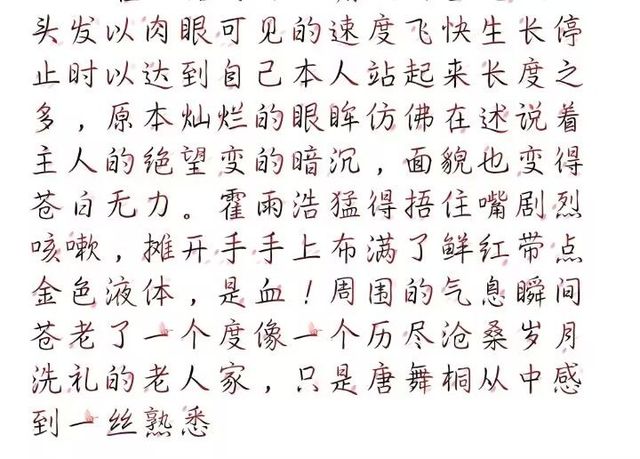 头发以肉眼可见的速度飞快生长停
止时以达到自己本人站起来长度之
多，原本灿烂的眼眸仿佛在述说着
主人的绝望变的暗沉，面貌也变得
苍白无力。霍雨浩猛得捂住嘴剧烈
咳嗽，摊开手手上布满了鲜红带点
金色液体，是血！周围的气息瞬间
苍老了一个度像一个历尽沧桑岁月
洗礼的老人家，只是唐舞桐从中感
到一丝熟悉